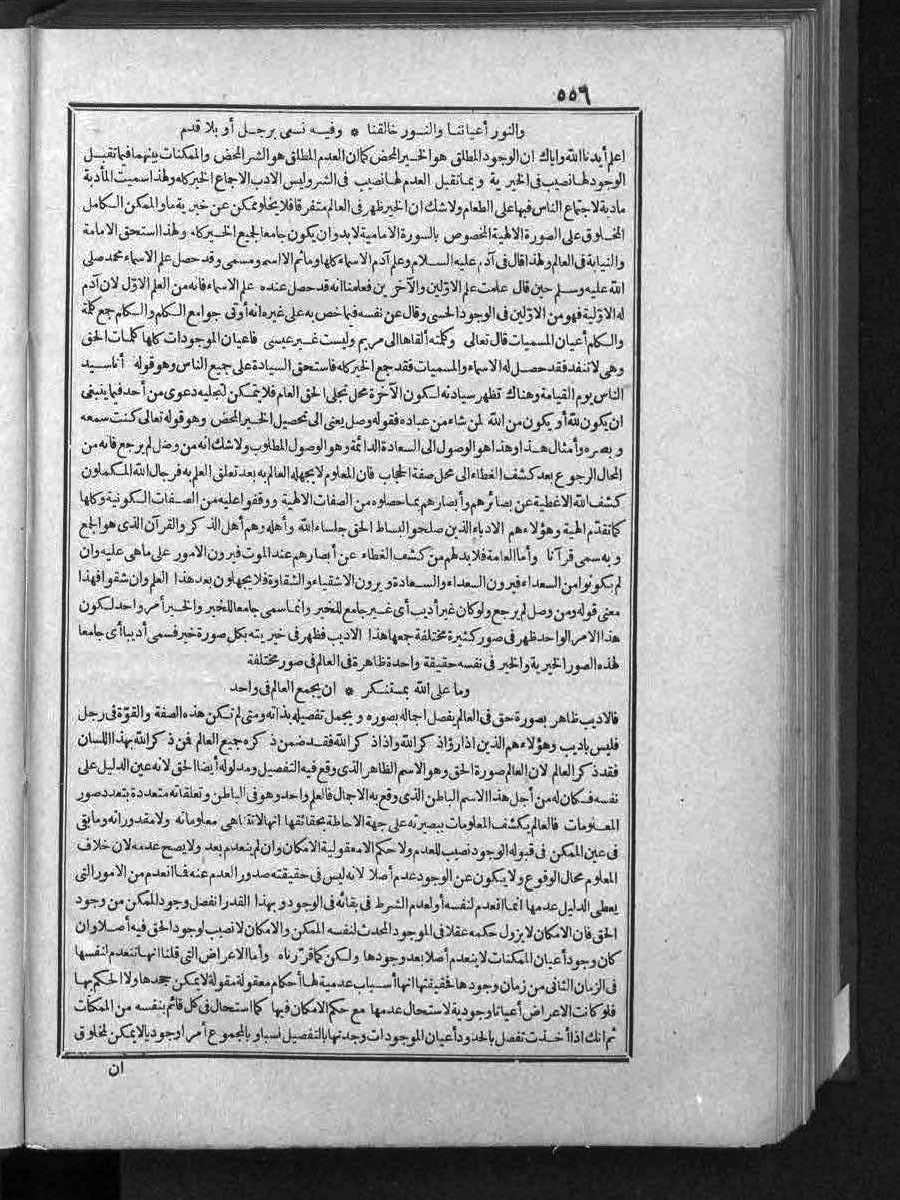 ٥٥٦
والنور أعياننا والنور خالقنا * وفيه نسعى برجل أو بلا قدم
اعلم أيدنا الله واياك ان الوجود المطلق هو الخير المحض كما ان العدم المطلق هو الشر المحض والممكنات بينهما فبما تقبل
الوجود لها نصيب في الخيرية وبما تقبل العدم لها نصيب في الشر وليس الادب الا جماع الخير كله ولهذا سميت المأدبة
مادبة لاجتماع الناس فيها على الطعام ولا شك ان الخير ظهر في العالم متفرقا فلا يخلو ممكن عن خيرية ما والممكن الكامل
المخلوق على الصورة الالهية المخصوص بالسورة الامامية لا بد وان يكون جامعا لجميع الخير كله ولهذا استحق الامامة
والنيابة في العالم ولهذا قال في آدم عليه السلام وعلم آدم الاسماء كلها وما ثم الا اسم ومسمى وقد حصل علم الاسماء محمد صلى
الله عليه وسلم حين قال علمت علم الاولين والآخرين فعلمنا انه قد حصل عنده علم الاسماء فانه من العلم الاول لان آدم
له الاولية فهو من الاولين في الوجود الحسى وقال عن نفسه فيما خص به على غيره انه أوتى جوامع الكلم والكلم جمع كلمة
والكلم أعيان المسميات قال تعالى وكلمته ألقاها الى مريم وليست غير عيسى فاعيان الموجودات كلها كلمات الحق
وهى لا تنفد فقد حصل له الاسماء والمسميات فقد جمع الخير كله فاستحق السيادة على جميع الناس وهو قوله أنا سيد
الناس يوم القيامة وهناك تظهر سيادته لكون الآخرة محل تجلى الحق العام فلا يتمكن لتجليه دعوى من أحد فيما ينبغى
ان يكون لله أو يكون من الله لمن شاء من عباده فقوله وصل يعنى الى تحصيل الخير المحض وهو قوله تعالى كنت سمعه
وبصره وأمثال هذا وهذا هو الوصول الى السعادة الدائمة وهو الوصول المطلوب ولا شك انه من وصل لم يرجع فانه من
المحال الرجوع بعد كشف الغطاء الى محل صفة الحجاب فان المعلوم لا يجهله العالم به بعد تعلق العلم به فرجال الله المكملون
كشف الله الاغطية عن بصائرهم وأبصارهم بما حصلوه من الصفات الالهية ووقفوا عليه من الصفات الكونية وكلها
كما تقدم الهية وهؤلاء هم الادباء الذين صلحوا لبساط الحق جلساء الله وأهله وهم أهل الذكر والقرآن الذى هو الجمع
وبه سمى قرآنا وأما العامة فلا بد لهم من كشف الغطاء عن أبصارهم عند الموت فيرون الامور على ما هى عليه وان
لم يكونوا من السعداء فيرون السعداء والسعادة ويرون الاشقياء والشقاوة فلا يجهلون بعد هذا العلم وان شقوا فهذا
معنى قوله ومن وصل لم يرجع ولو كان غير أديب أى غير جامع للخير وانما سمى جامعا للخير والخير أمر واحد لكون
هذا الامر الواحد ظهر في صور كثيرة مختلفة جعها هذا الاديب فظهر في خيريته بكل صورة خير فسمى أديبا أى جامعا
لهذه الصور الخيرية والخير في نفسه حقيقة واحدة ظاهرة في العالم في صور مختلفة
وما على الله بمستنكر * ان يجمع العالم في واحد
فالاديب ظاهر بصورة حق في العالم يفصل اجماله بصوره ويجمل تفصيله بذاته ومتى لم تكن هذه الصفة والقوة في رجل
فليس باديب وهؤلاء هم الذين اذا رؤا ذكر الله واذا ذكر الله فقد ضمن ذكره جميع العالم فمن ذكر الله بهذا اللسان
فقد ذكر العالم لان العالم صورة الحق وهو الاسم الظاهر الذى وقع فيه التفصيل ومدلوله أيضا الحق لانه عين الدليل على
نفسه فكان له من أجل هذا الاسم الباطن الذى وقع به الاجمال فالعلم واحد وهو في الباطن وتعلقاته متعددة بتعدد صور
المعلومات فالعالم يكشف المعلومات ببصيرته على جهة الاحاطة بحقائقها انها لا تتناهى معلوماته ولا مقدوراته وما بقى
في عين الممكن في قبوله الوجود نصيب للعدم ولا حكم الا معقولية الامكان وان لم ينعدم بعد ولا يصح عدمه لان خلاف
المعلوم محال الوقوع ولا يكون عن الوجود عدم أصلا لانه ليس في حقيقته صدور العدم عنه فما انعدم من الامور التى
يعطى الدليل عدمها انما انعدم لنفسه أو لعدم الشرط في بقائه في الوجود وبهذا القدر انفصل وجود الممكن من وجود
الحق فان الامكان لا يزول حكمه عقلا في الموجود المحدث لنفسه الممكن والامكان لا نصيب لوجود الحق فيه أصلا وان
كان وجود أعيان الممكنات لا ينعدم أصلا بعد وجودها ولكن كما قررناه وأما الاعراض التى قلنا انها تنعدم لنفسها
في الزمان الثانى من زمان وجودها فحقيقتها انها أسباب عدمية لها أحكام معقولة مقولة لا يمكن جحدها ولا الحكم بها
فلو كانت الاعراض أعيانا وجودية لاستحال عدمها مع حكم الامكان فيها كما استحال في كل قائم بنفسه من الممكنات
ثم انك اذا أخذت تفصل بالحدود أعيان الموجودات وجدتها بالتفصيل نسبا وبالمجموع أمرا وجوديا لا يمكن لمخلوق
ان